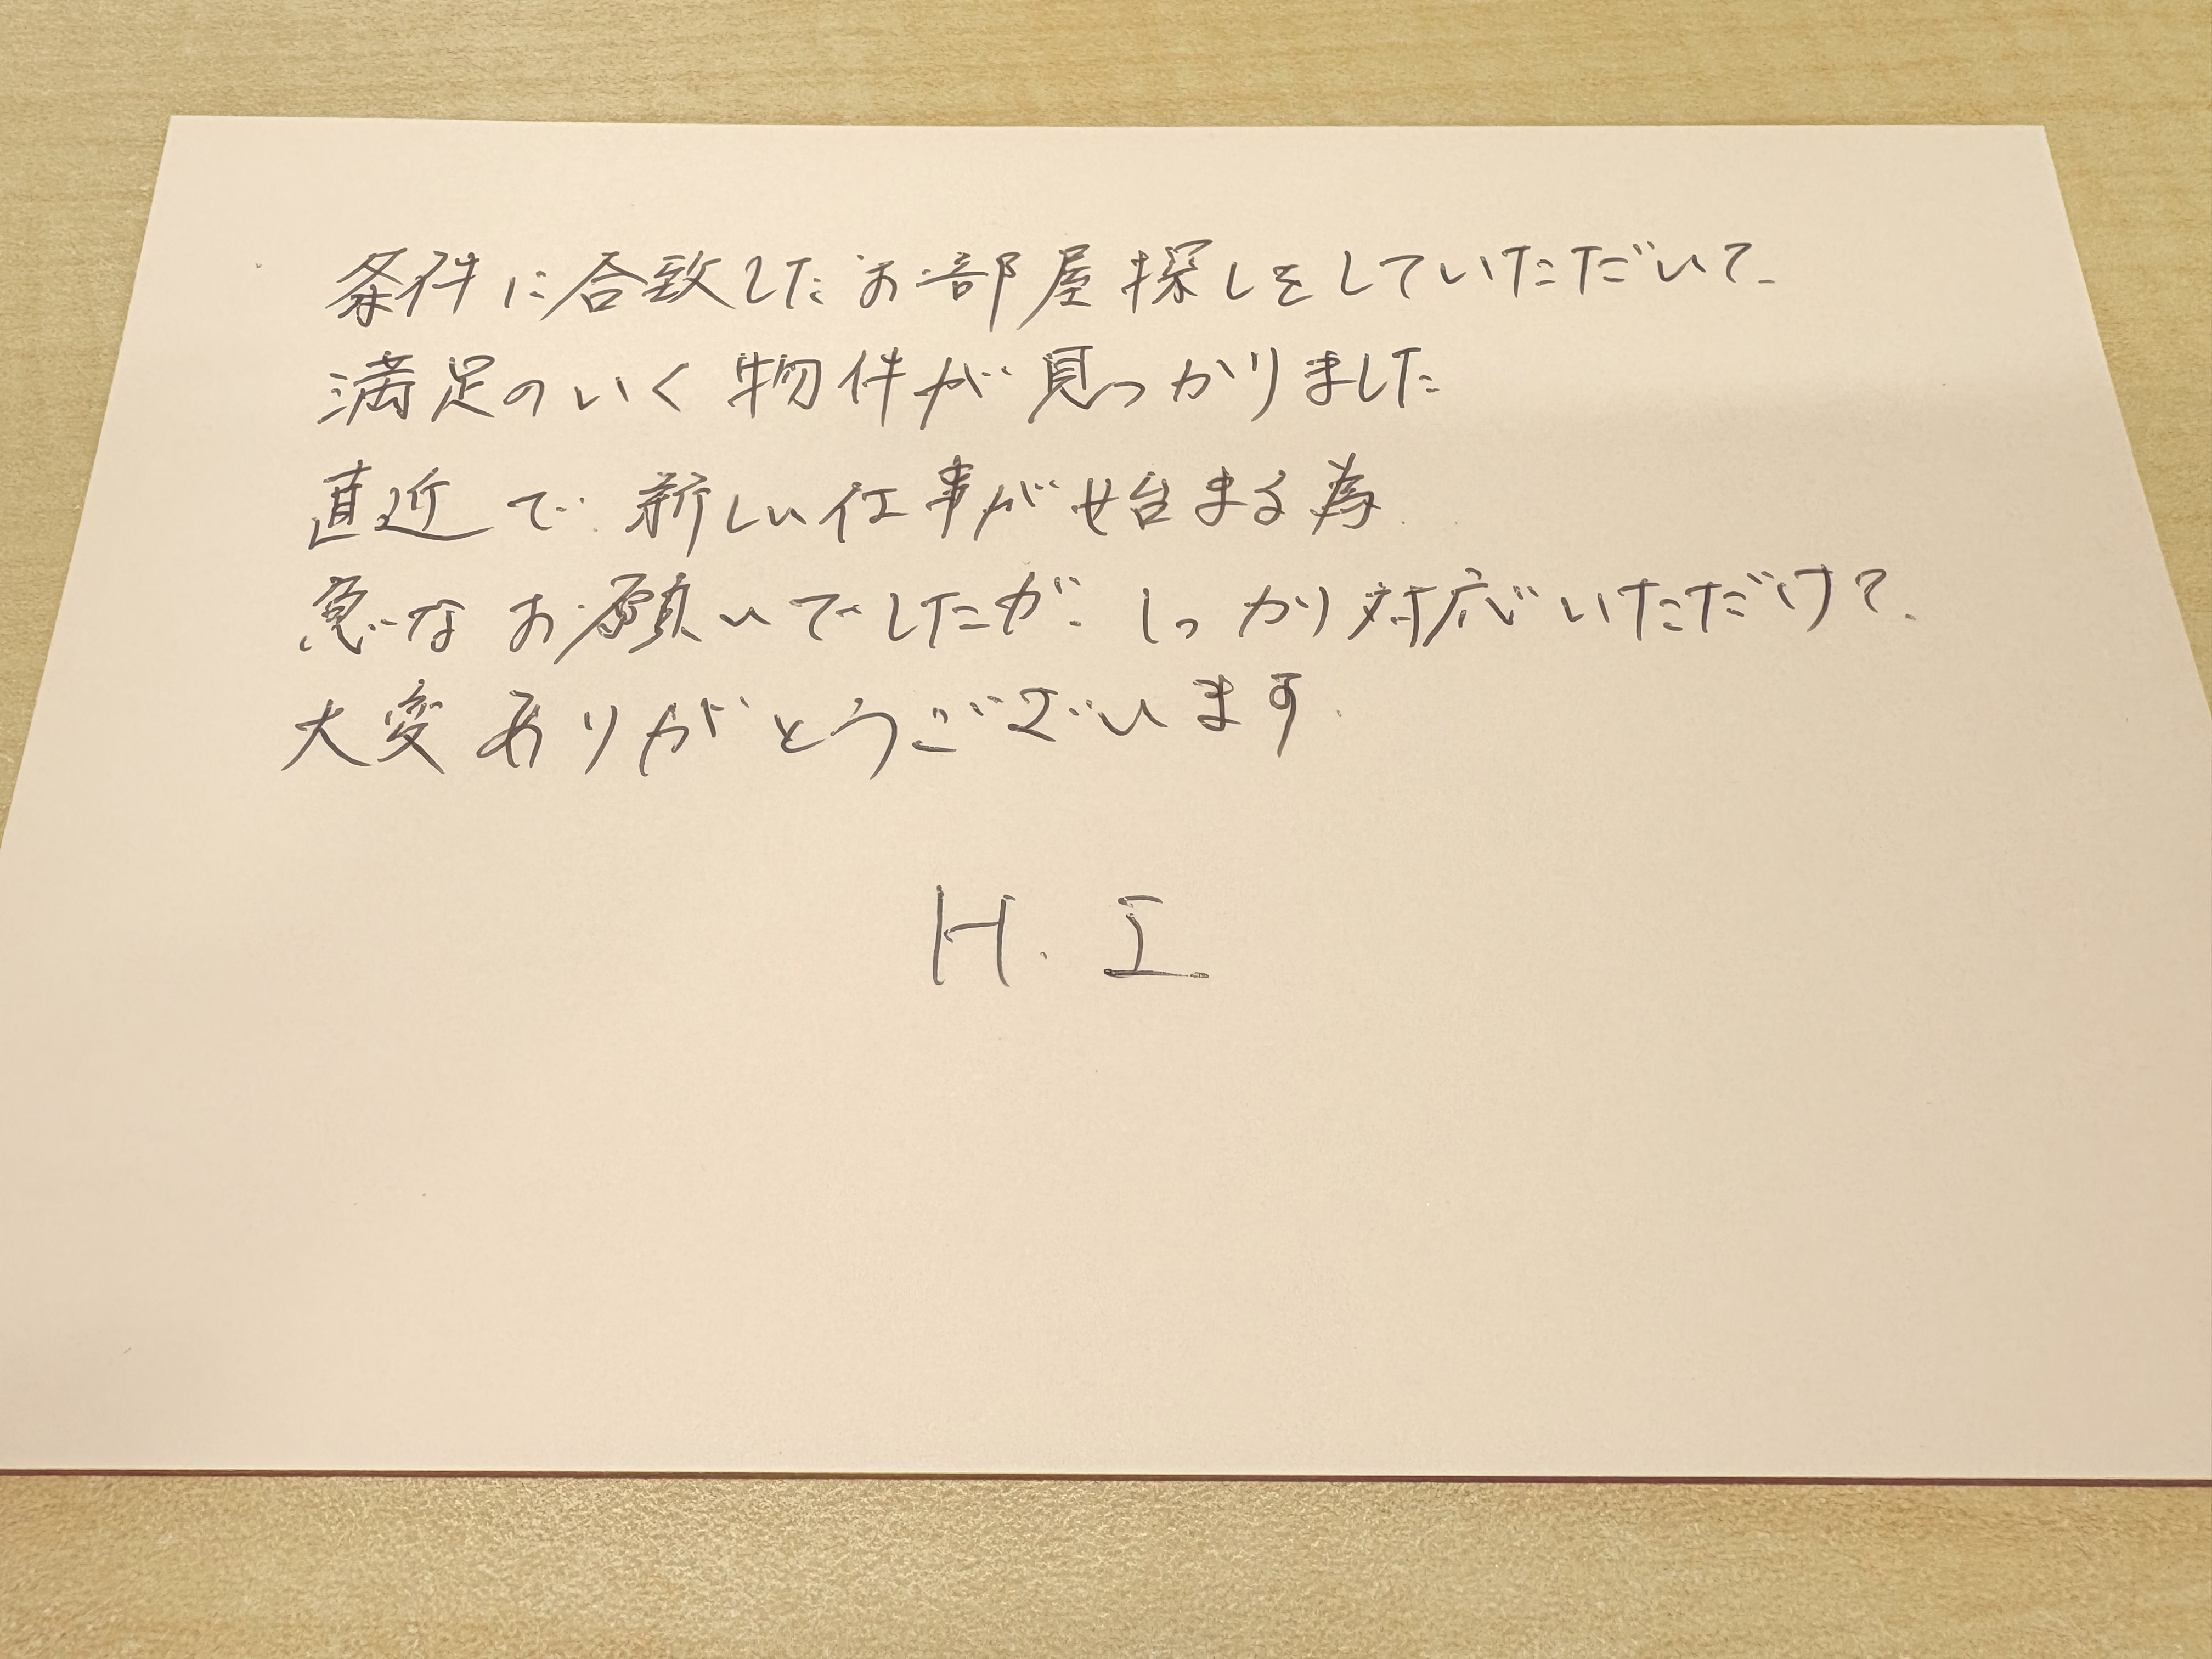 条件に合致したお部屋探しをしていただいて、
満足のいく物件が見つかりました
直近で新しい仕事が始まる為
急なお願いでしたが、しっかり対応いただけて、
大変ありがとうございます
H. I.